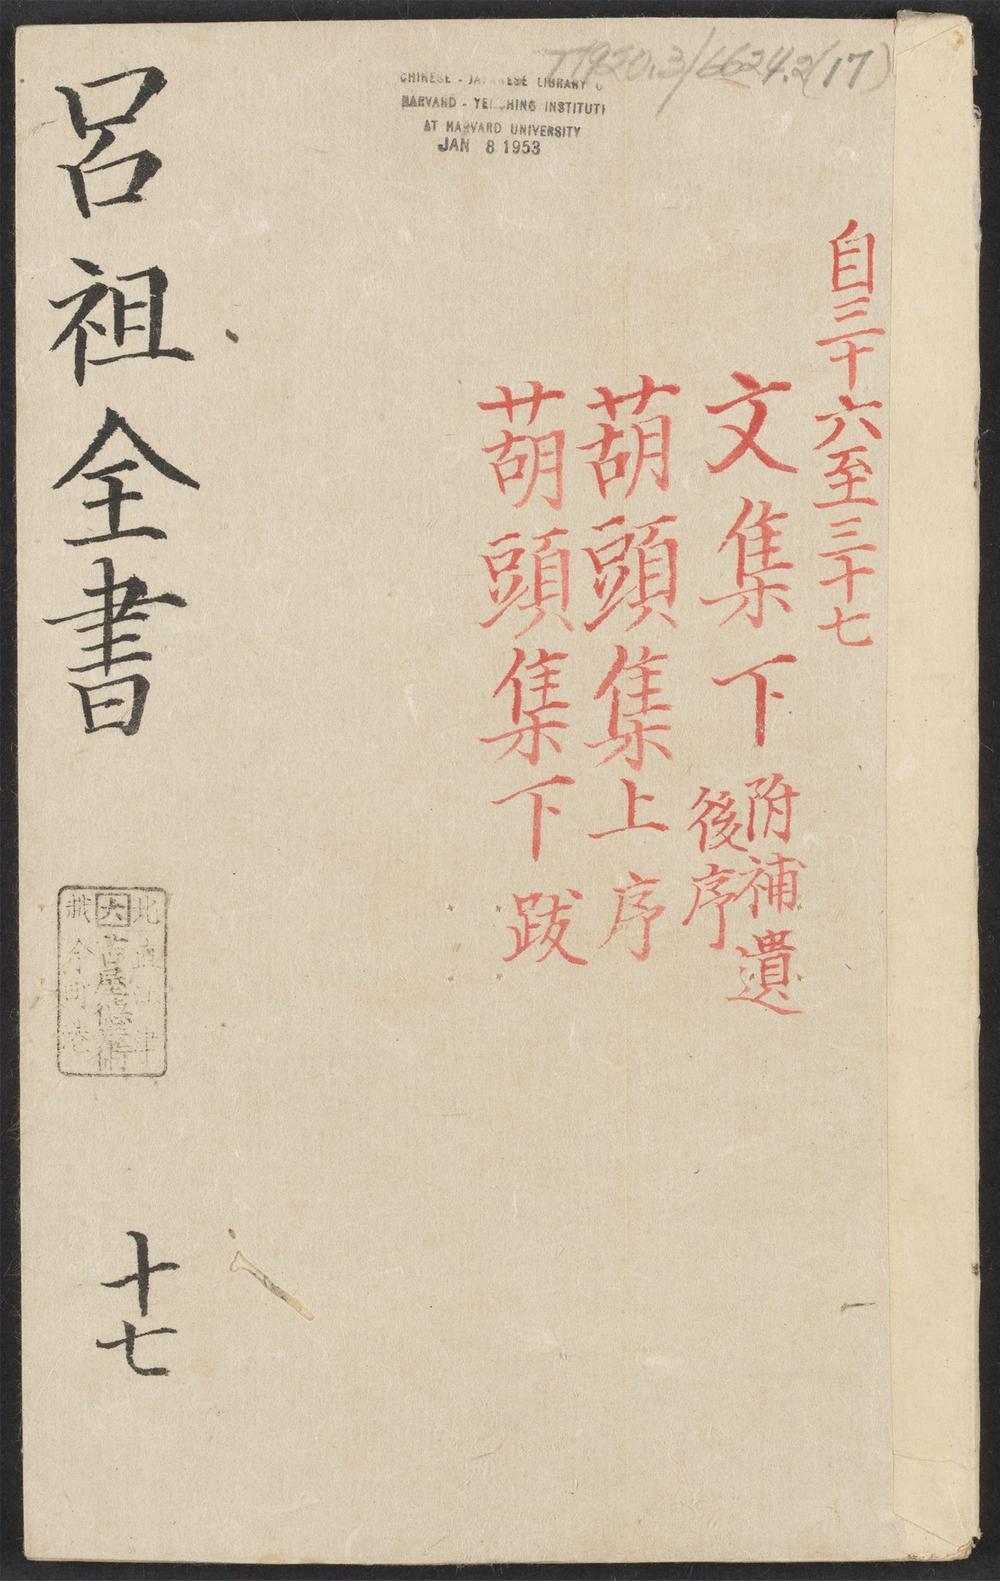 T1920.3/6624.2(17)
HARVARD - YENCHING INSTITUTE
AT HARVARD UNIVERSITY
JAN 8 1953
自三十六至三十七
文集下 附補遺
後序
葫頭集上 序
葫頭集下 跋
呂祖全書
十七